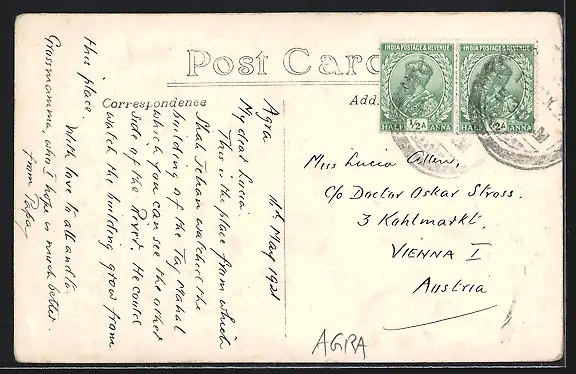 Post Card
Correspondence
Add
INDIA POSTAGE & REVENUE
½A
HALF ANNA
INDIA POSTAGE & REVENUE
½A
HALF ANNA
Agra
11th May 1931
My dear Lucia
This is the place from which
Shah Jehan watched the
building of the Taj Mahal
which you can see the other
side of the River. He could
watch the building grow from
this place.
With love to all and to
Grossmamma, who I hope is much better.
from Papa
Miss Lucia
C/o Doctor Oskar Stross.
3 Kohlmarkt.
VIENNA I
Austria
AGRA